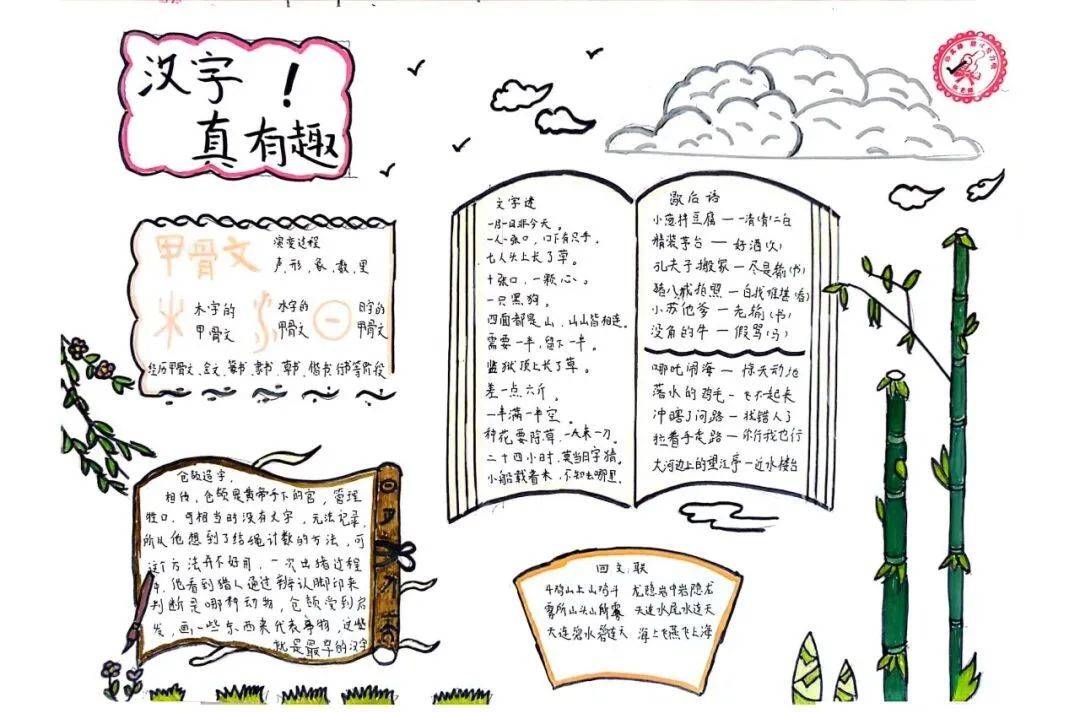 汉字！
真有趣
甲骨文
演变过程
声、形、象、数、里
木字的
甲骨文
水字的
甲骨文
日字的
甲骨文
经历甲骨文、金文、篆书、隶书、草书、楷书、行书等阶段
仓颉造字。
相传，仓颉是黄帝手下的官，管理
牲口，可相当时没有文字，无法记录，
所以他想到了结绳计数的方法，可
这个方法并不好用，一次出猪过程
中，他看到猎人通过辨认脚印来
判断是哪种动物，仓颉受到启
发，画一些东西来代表事物，这些
就是最早的汉字
文字迷
一月一日非今天。
一人一张口，口下有只手。
七人头上长了草。
十张口，一颗心。
一只黑狗。
四面都是山，山山皆相连。
需要一半，留下一半。
监狱顶上长了草。
差一点六斤。
一半满一半空。
种花要除草，一火来一刀。
二十四小时，莫当日字猜。
小船载着木，不知去哪里。
歇后语
小葱拌豆腐——一清(青)二白
精装茅台——好酒(久)
孔夫子搬家——尽是输(书)
猪八戒拍照——自找难堪(看)
小苏他爹——老输(书)
没角的牛——假骂(马)
哪吒闹海——惊天动地
落水的鸡毛——飞不起来
冲瞎子问路——找错人了
拉着手走路——你行我也行
大河边上的望江亭——近水楼台
回文联
斗鸡山上山鸡斗 龙隐岩中岩隐龙
雾所山头山所雾 天连水尾水连天
天连碧水碧连天 海上飞燕飞上海